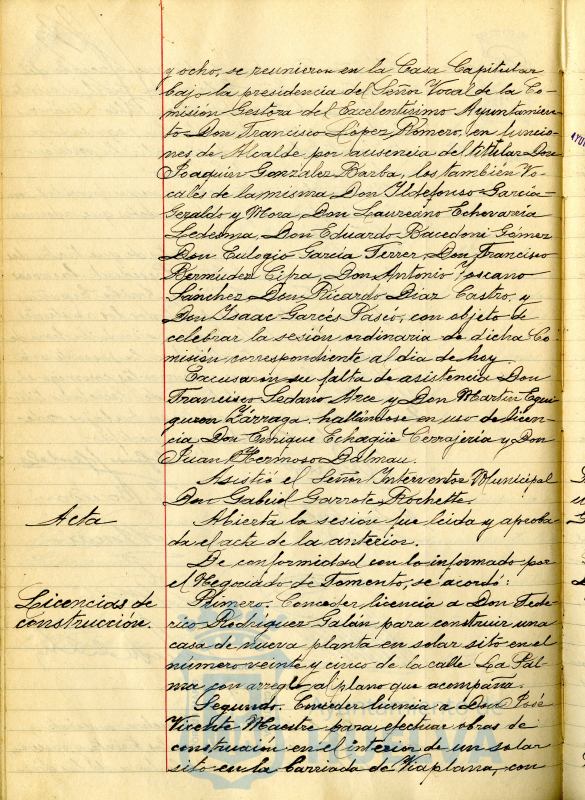 y ocho, se reunieron en la Casa Capitular
bajo la presidencia del Señor Vocal de la Co-
misión Gestora del Excelentísimo Ayuntamien-
to Don Francisco López Romero, en funcio-
nes de Alcalde por ausencia del titular Don
Joaquin Gonzalez Barba, los tambien Vo-
cales de la misma, Don Ildefonso Garcia-
Geraldo y Mora, Don Laureano Echevarria
Ledesma, Don Eduardo Bacedoni Gómez
Don Eulogio Garcia Ferrer, Don Francisco
Bermúdez Cipra, Don Antonio Toscano
Sánchez, Don Ricardo Diaz Castro, y
Don Isaac Garcés Paseó, con objeto de
celebrar la sesión ordinaria de dicha Co-
misión correspondiente al dia de hoy.
Excusaron su falta de asistencia Don
Francisco Sedano Arce y Don Martin Egui-
guren Zárraga, hallándose en uso de licen-
cia Don Enrique Echagüe Cerrajeria y Don
Juan Hermoso Dalmau.
Asistió el Señor Interventor Municipal
Don Gabriel Garrote Rochette.
Acta
Abierta la sesión fue leida y aproba-
da el acta de la anterior.
De conformidad con lo informado por
el Negociado de Fomento, se acordó:
Licencias de
construcción.
Primero. Conceder licencia a Don Fede-
rico Rodriguez Galán para construir una
casa de nueva planta en solar sito en el
número veinte y cinco de la calle La Pal-
ma con arreglo al plano que acompaña.
Segundo. Conceder licencia a Don José
Vicente Maestre para efectuar obras de
construcion en el interior de un solar
sito en la barriada de Viaplana, con
HUELVA